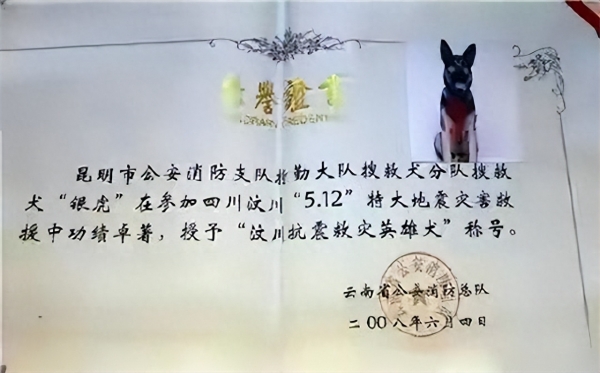 誉證
昆明市公安消防支队特勤大队搜救犬分队搜救
犬“银虎”在参加四川汶川“5.12”特大地震灾害救
援中功绩卓著，授予“汶川抗震救灾英雄犬”称号。
云南省公安消防总队
二〇〇八年六月四日